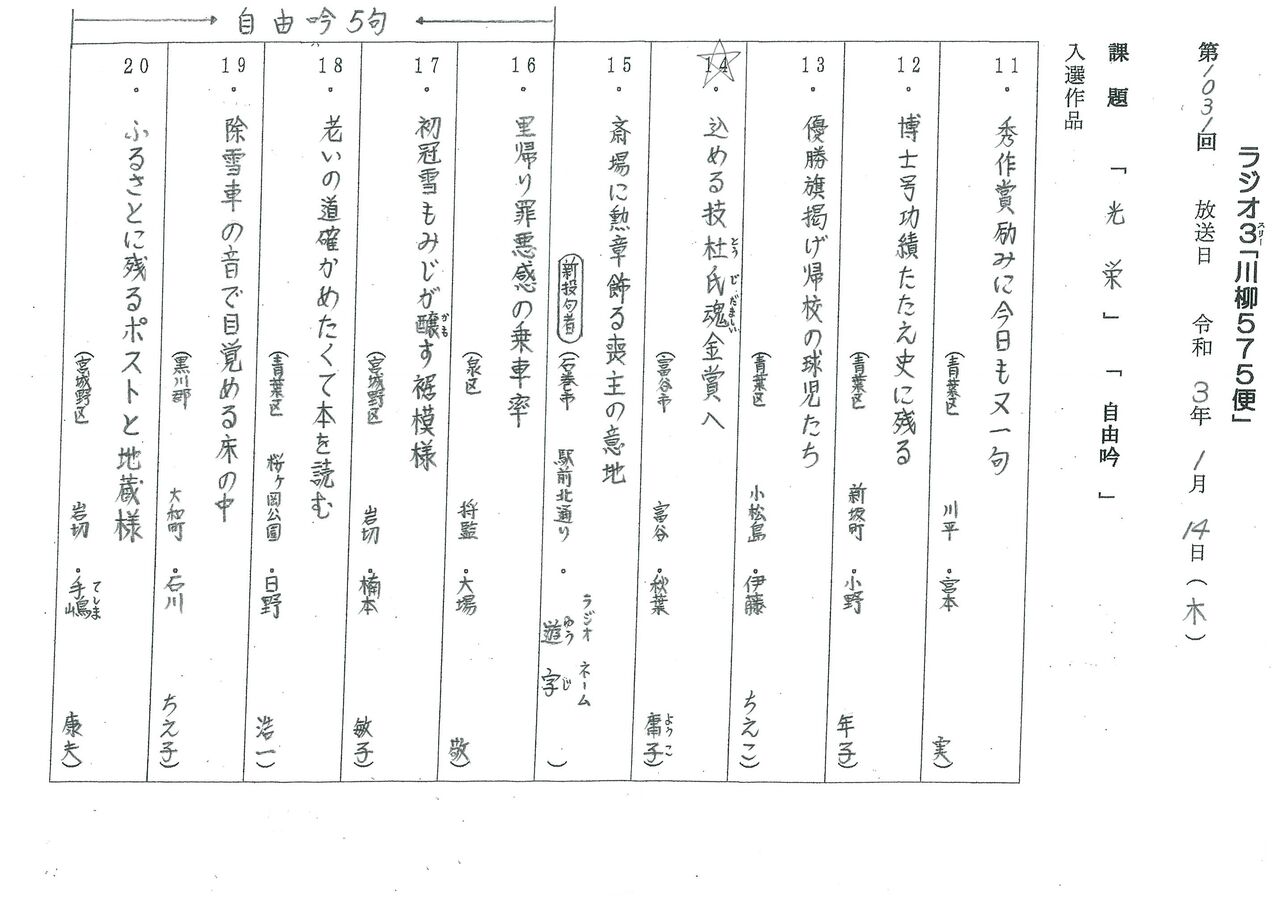 ラジオ3「川柳575便」
スリー
第1031回 放送日 令和3年1月14日(木)
課題 「光栄」「自由吟」
入選作品
11. 秀作賞励みに今日も又一句
(青葉区 川平・宮本 実)
12. 博士号功績たたえ史に残る
(青葉区 新坂町・小野 年子)
13. 優勝旗掲げ帰校の球児たち
(青葉区 小松島・伊藤 ちえこ)
14. 込める技杜氏魂金賞へ
とうじだましい
(富谷市 富谷・秋葉 庸子)
ようこ
15. 斎場に勲章飾る喪主の意地
新投句者
(石巻市 駅前北通り・遊字)
ラジオネーム
ゆうじ
自由吟5句
16. 里帰り罪悪感の乗車率
(泉区 将監・大場 敬)
17. 初冠雪もみじが醸す裾模様
かも
(宮城野区 岩切・楠本 敏子)
18. 老いの道確かめたくて本を読む
(青葉区 桜ヶ岡公園・日野 浩一)
19. 除雪車の音で目覚める床の中
(黒川郡 大和町・石川 ちえ子)
20. ふるさとに残るポストと地蔵様
(宮城野区 岩切・手嶋 康夫)
てしま